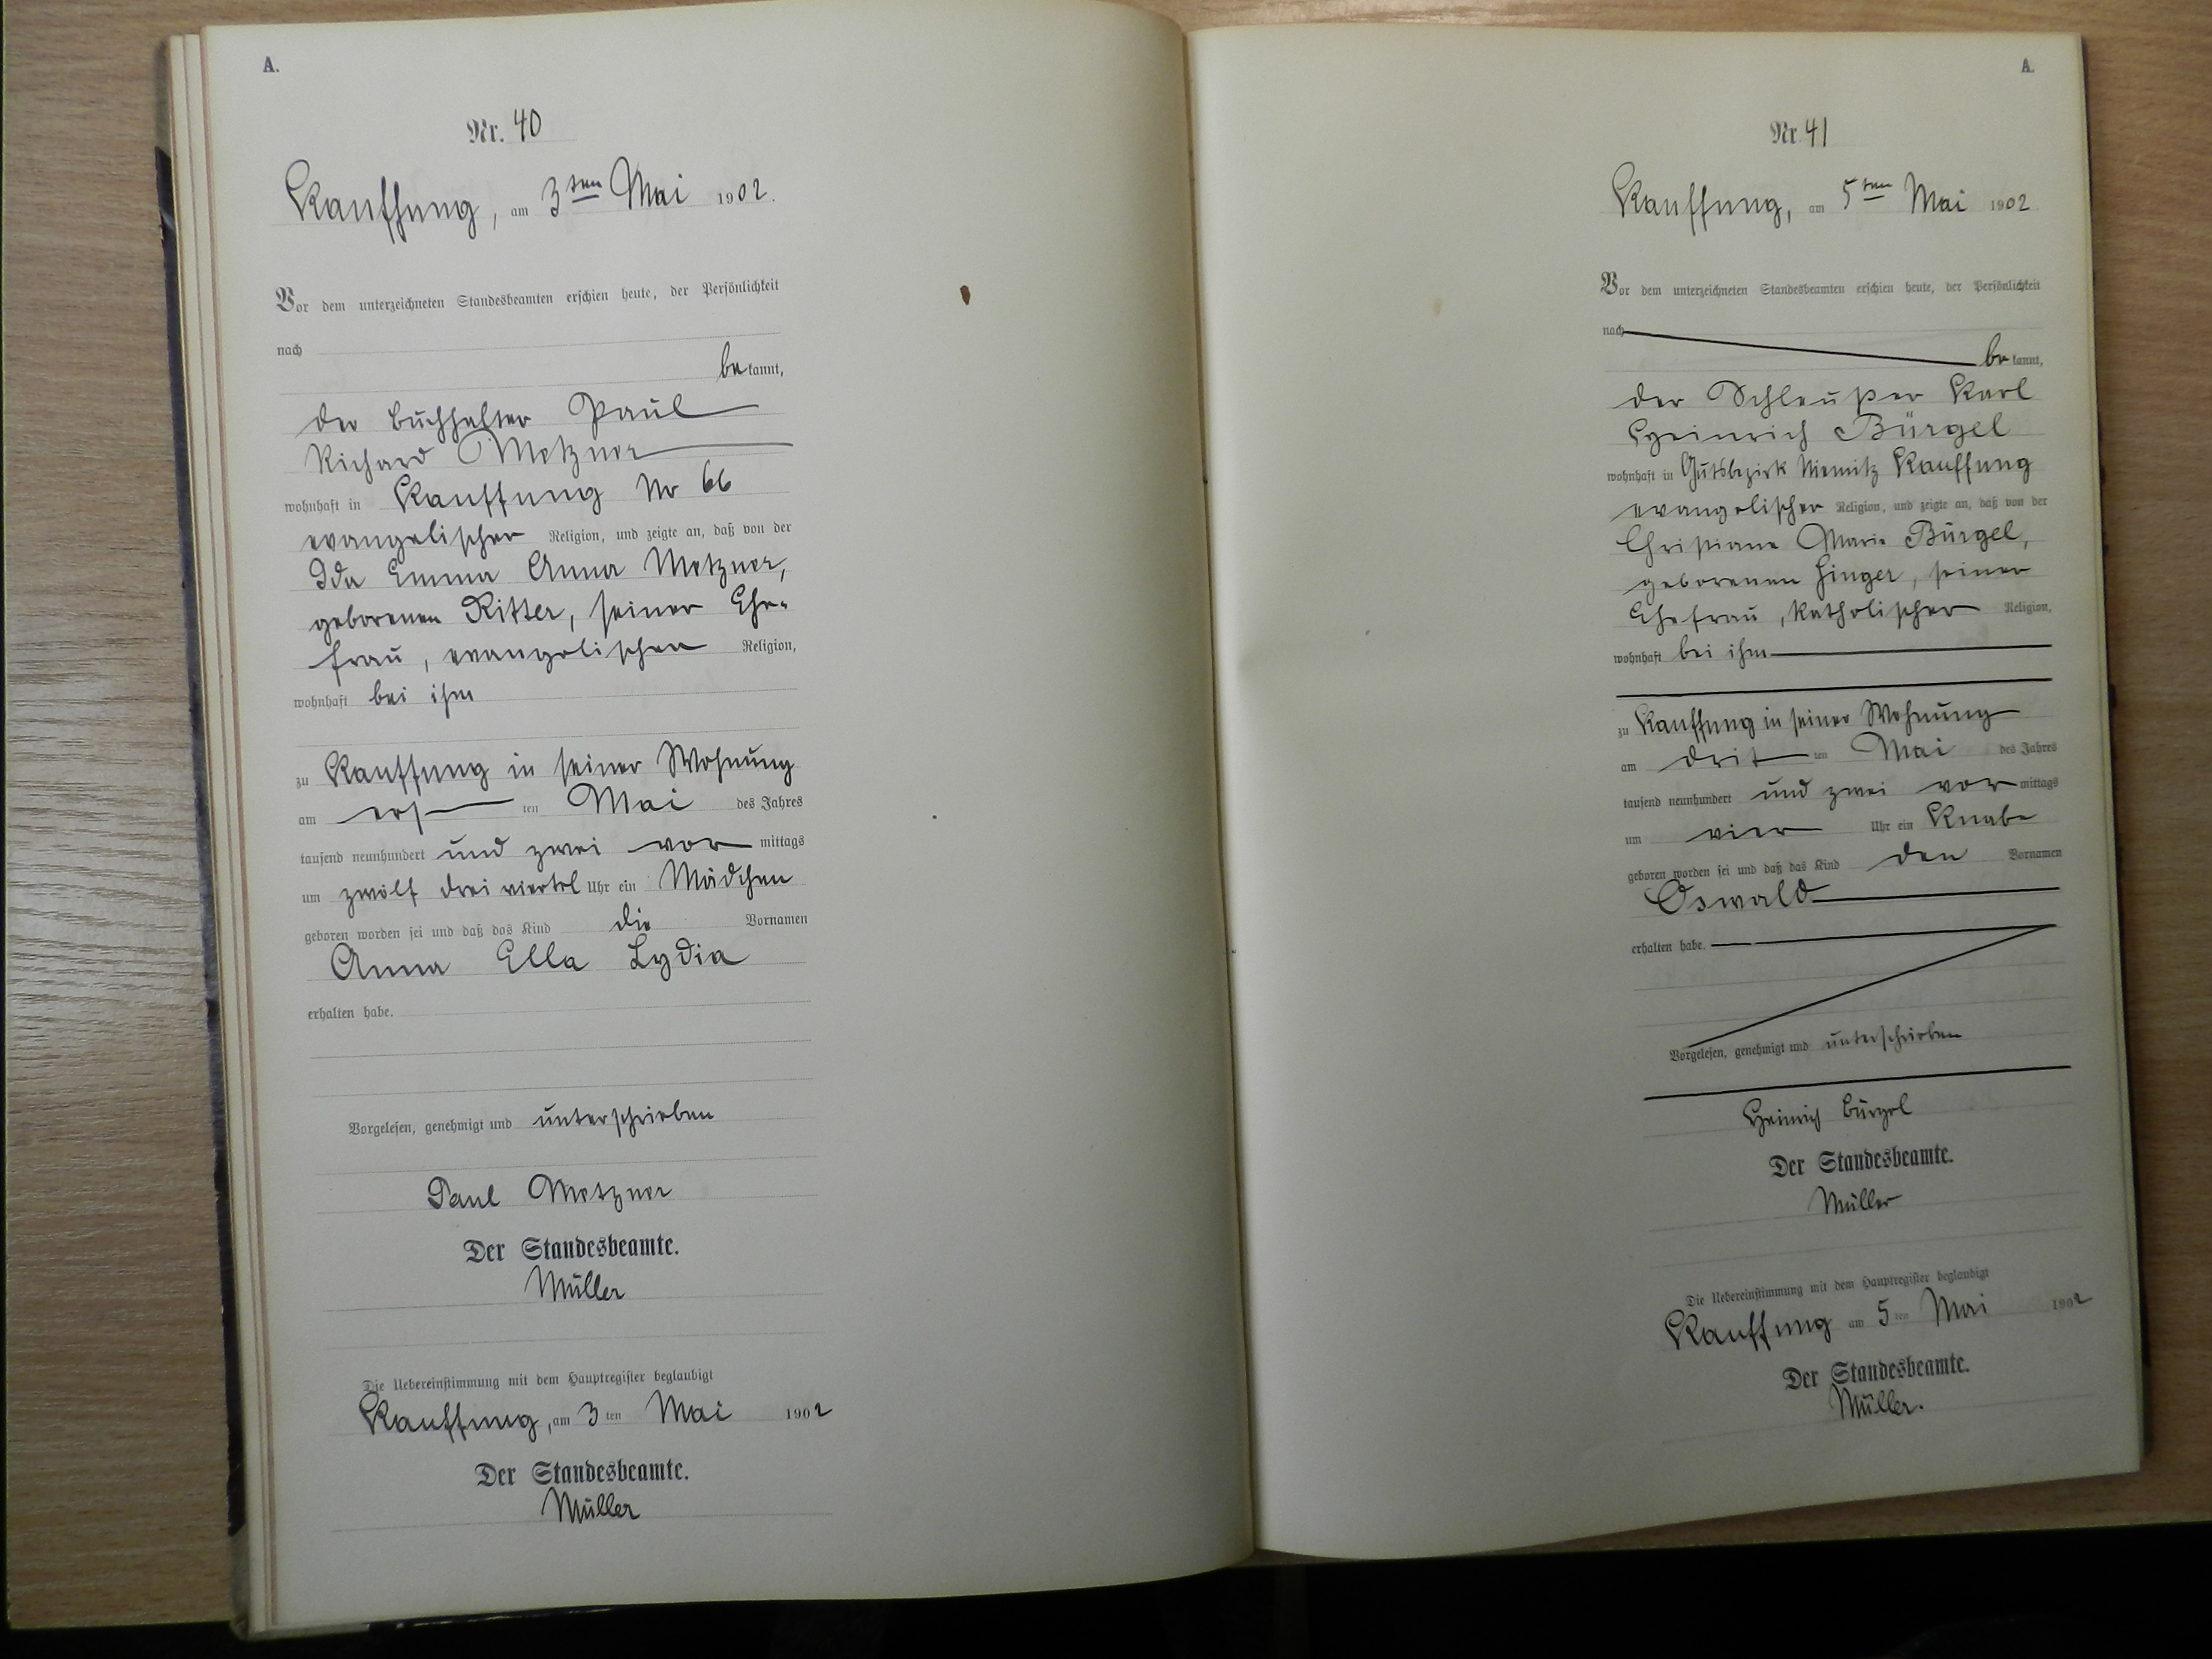 A.
Nr. 40
Kauffung, am 3ten Mai 1902.
Vor dem unterzeichneten Standesbeamten erschien heute, der Persönlichkeit
nach
bekannt,
der Buchhalter Paul
Richard Metzner
wohnhaft in Kauffung No 66
evangelischer Religion, und zeigte an, daß von der
Ida Emma Anna Metzner,
geborenen Ritter, seiner Ehe-
frau, evangelischen Religion,
wohnhaft bei ihm
zu Kauffung in seiner Wohnung
am ersten Mai des Jahres
tausend neunhundert und zwei vormittags
um zwölf drei viertel Uhr ein Mädchen
geboren worden sei und daß das Kind die Vornamen
Anna Ella Lydia
erhalten habe.
Vorgelesen, genehmigt und unterschrieben
Paul Metzner
Der Standesbeamte.
Müller
Die Uebereinstimmung mit dem Hauptregister beglaubigt
Kauffung, am 3ten Mai 1902
Der Standesbeamte.
Müller
A.
Nr. 41
Kauffung, am 5ten Mai 1902.
Vor dem unterzeichneten Standesbeamten erschien heute, der Persönlichkeit
nach
bekannt,
der Schleußer Karl
Heinrich Bürgel
wohnhaft in Gutsbezirk Niemitz Kauffung
evangelischer Religion, und zeigte an, daß von der
Christiane Marie Bürgel,
geborenen Hinger, seiner
Ehefrau, katholischer Religion,
wohnhaft bei ihm
zu Kauffung in seiner Wohnung
am dritten Mai des Jahres
tausend neunhundert und zwei vormittags
um vier Uhr ein Knabe
geboren worden sei und daß das Kind den Vornamen
Oswald
erhalten habe.
Vorgelesen, genehmigt und unterschrieben
Heinrich Bürgel
Der Standesbeamte.
Müller
Die Uebereinstimmung mit dem Hauptregister beglaubigt
Kauffung am 5ten Mai 1902
Der Standesbeamte.
Müller.